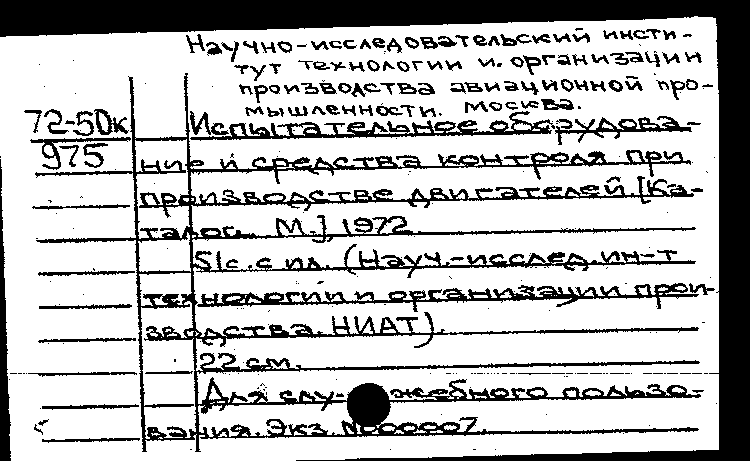 Научно-исследовательский инсти-
тут технологии и организации
производства авиационной про-
мышленности. Москва.
72-50к Испытательное оборудова-
975 ние и средства контроля при
производстве двигателей [Ка-
талог. М.], 1972.
51с. с ил. (Науч.-исслед. ин-т
технологии и организации прои-
зводства. НИАТ).
22 см.
Для слу-жебного пользо-
вания. Экз. №000007.